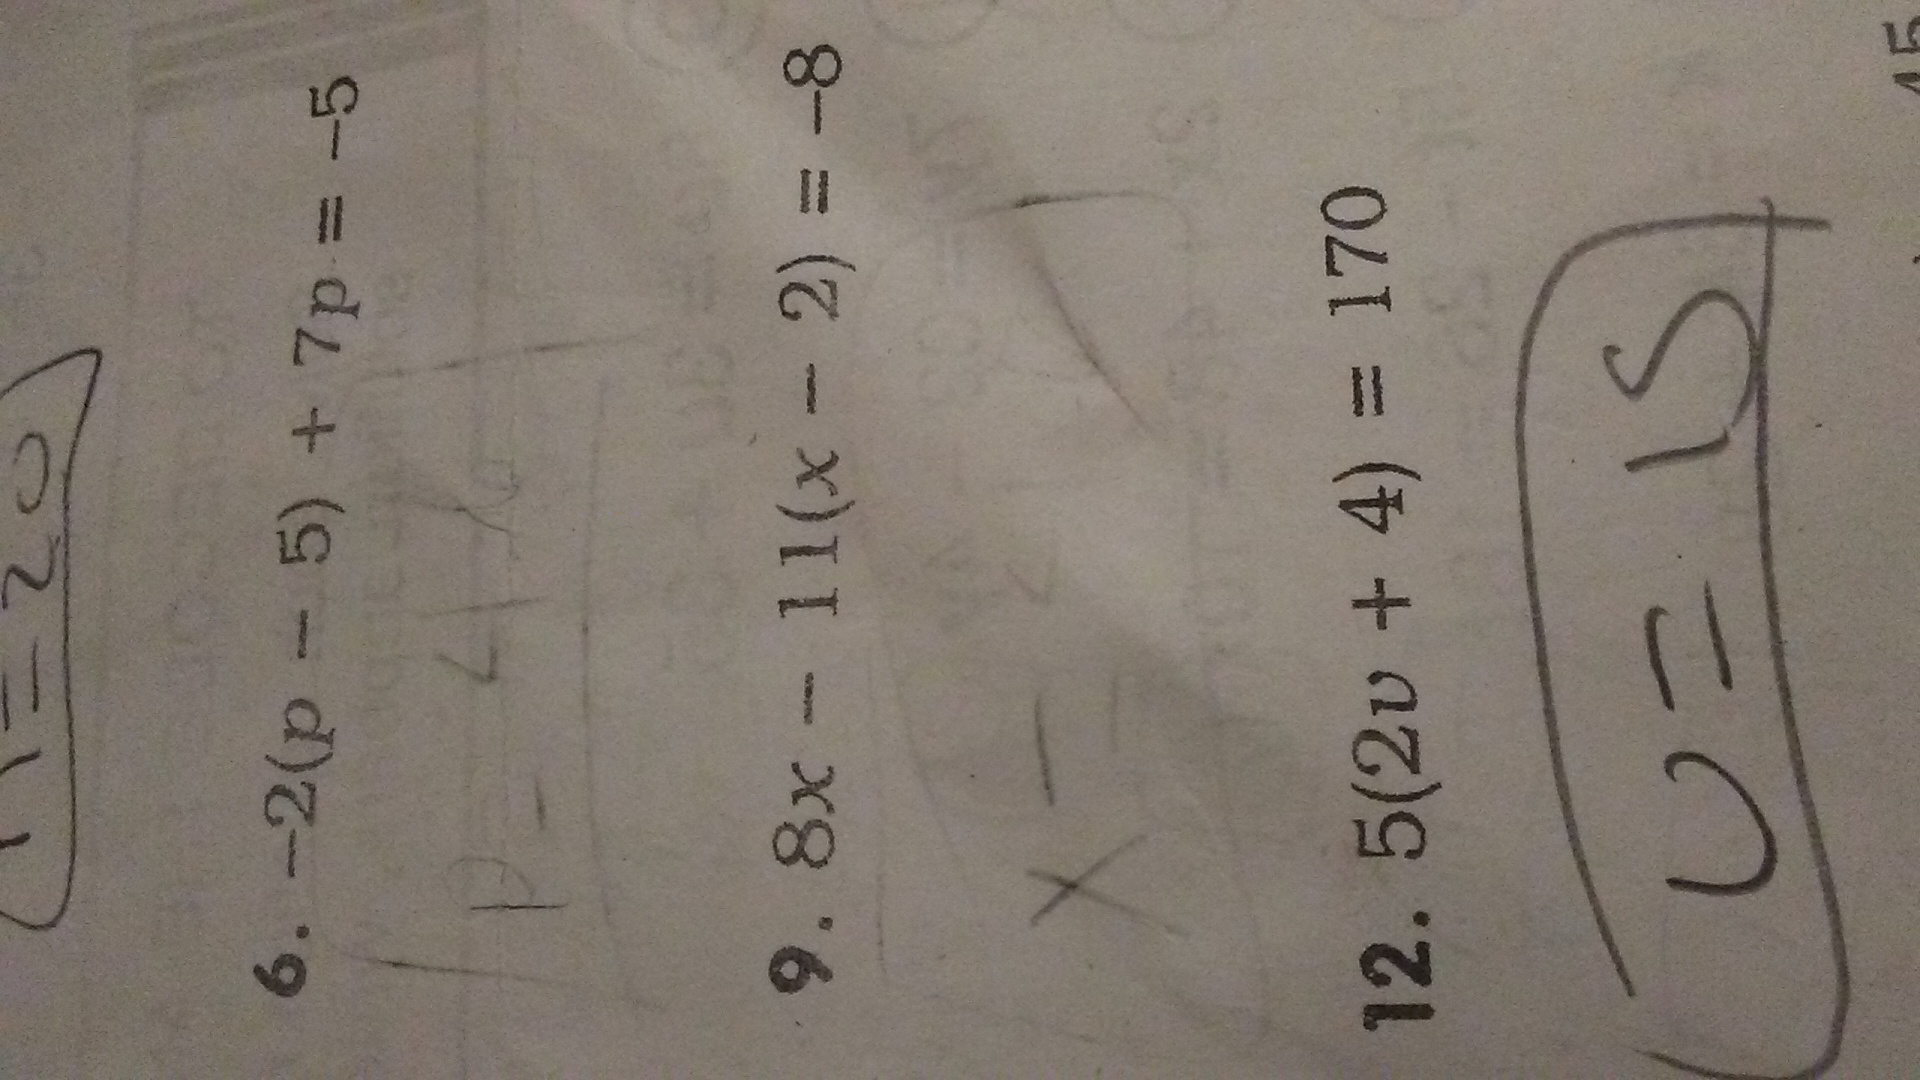 = 20
6. −2(p − 5) + 7p = −5
p =
9. 8x − 11(x − 2) = −8
x =
12. 5(2v + 4) = 170
v = 15
15